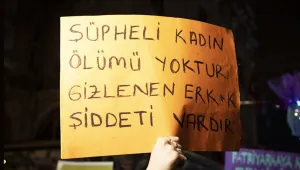 ŞÜPHELİ KADIN
ÖLÜMÜ YOKTUR,
GİZLENEN ERK*K
ŞİDDETİ VARDIR
PATRİYARKAYA